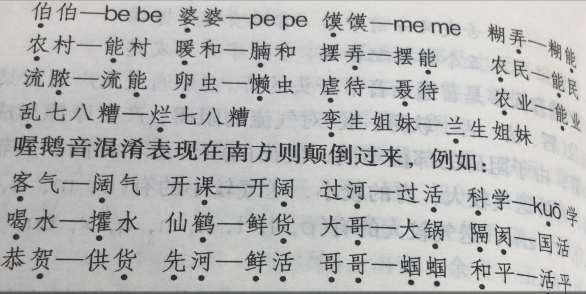 伯伯—be be 婆婆—pe pe 馍馍—me me 糊弄—糊能
农村—能村 暖和—腩和 摆弄—摆能 农民—能民
流脓—流能 卵虫—懒虫 虐待—聂待 农业—能业
乱七八糟—烂七八糟 孪生姐妹—兰生姐妹
喔鹅音混淆表现在南方则颠倒过来，例如：
客气—阔气 开课—开阔 过河—过活 科学—kuō学
喝水—攉水 仙鹤—鲜货 大哥—大锅 隔阂—国活
恭贺—供货 先河—鲜活 哥哥—蝈蝈 和平—活平